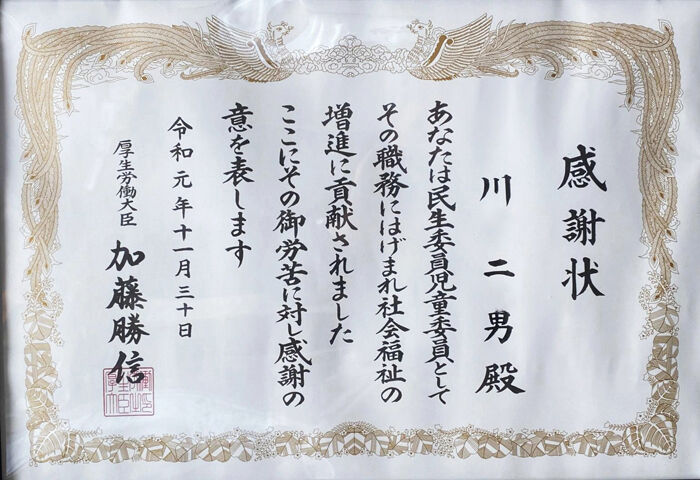 感謝状
川二男殿
あなたは民生委員児童委員として
その職務にはげまれ社会福祉の
増進に貢献されました
ここにその御労苦に対し感謝の
意を表します
令和元年十一月三十日
厚生労働大臣 加藤勝信